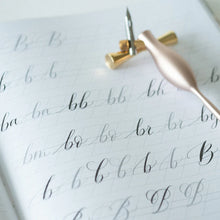 B B
b b b
ba b bb bb bh b
bm bo bo br
b b b b b b
b b b B B
B B